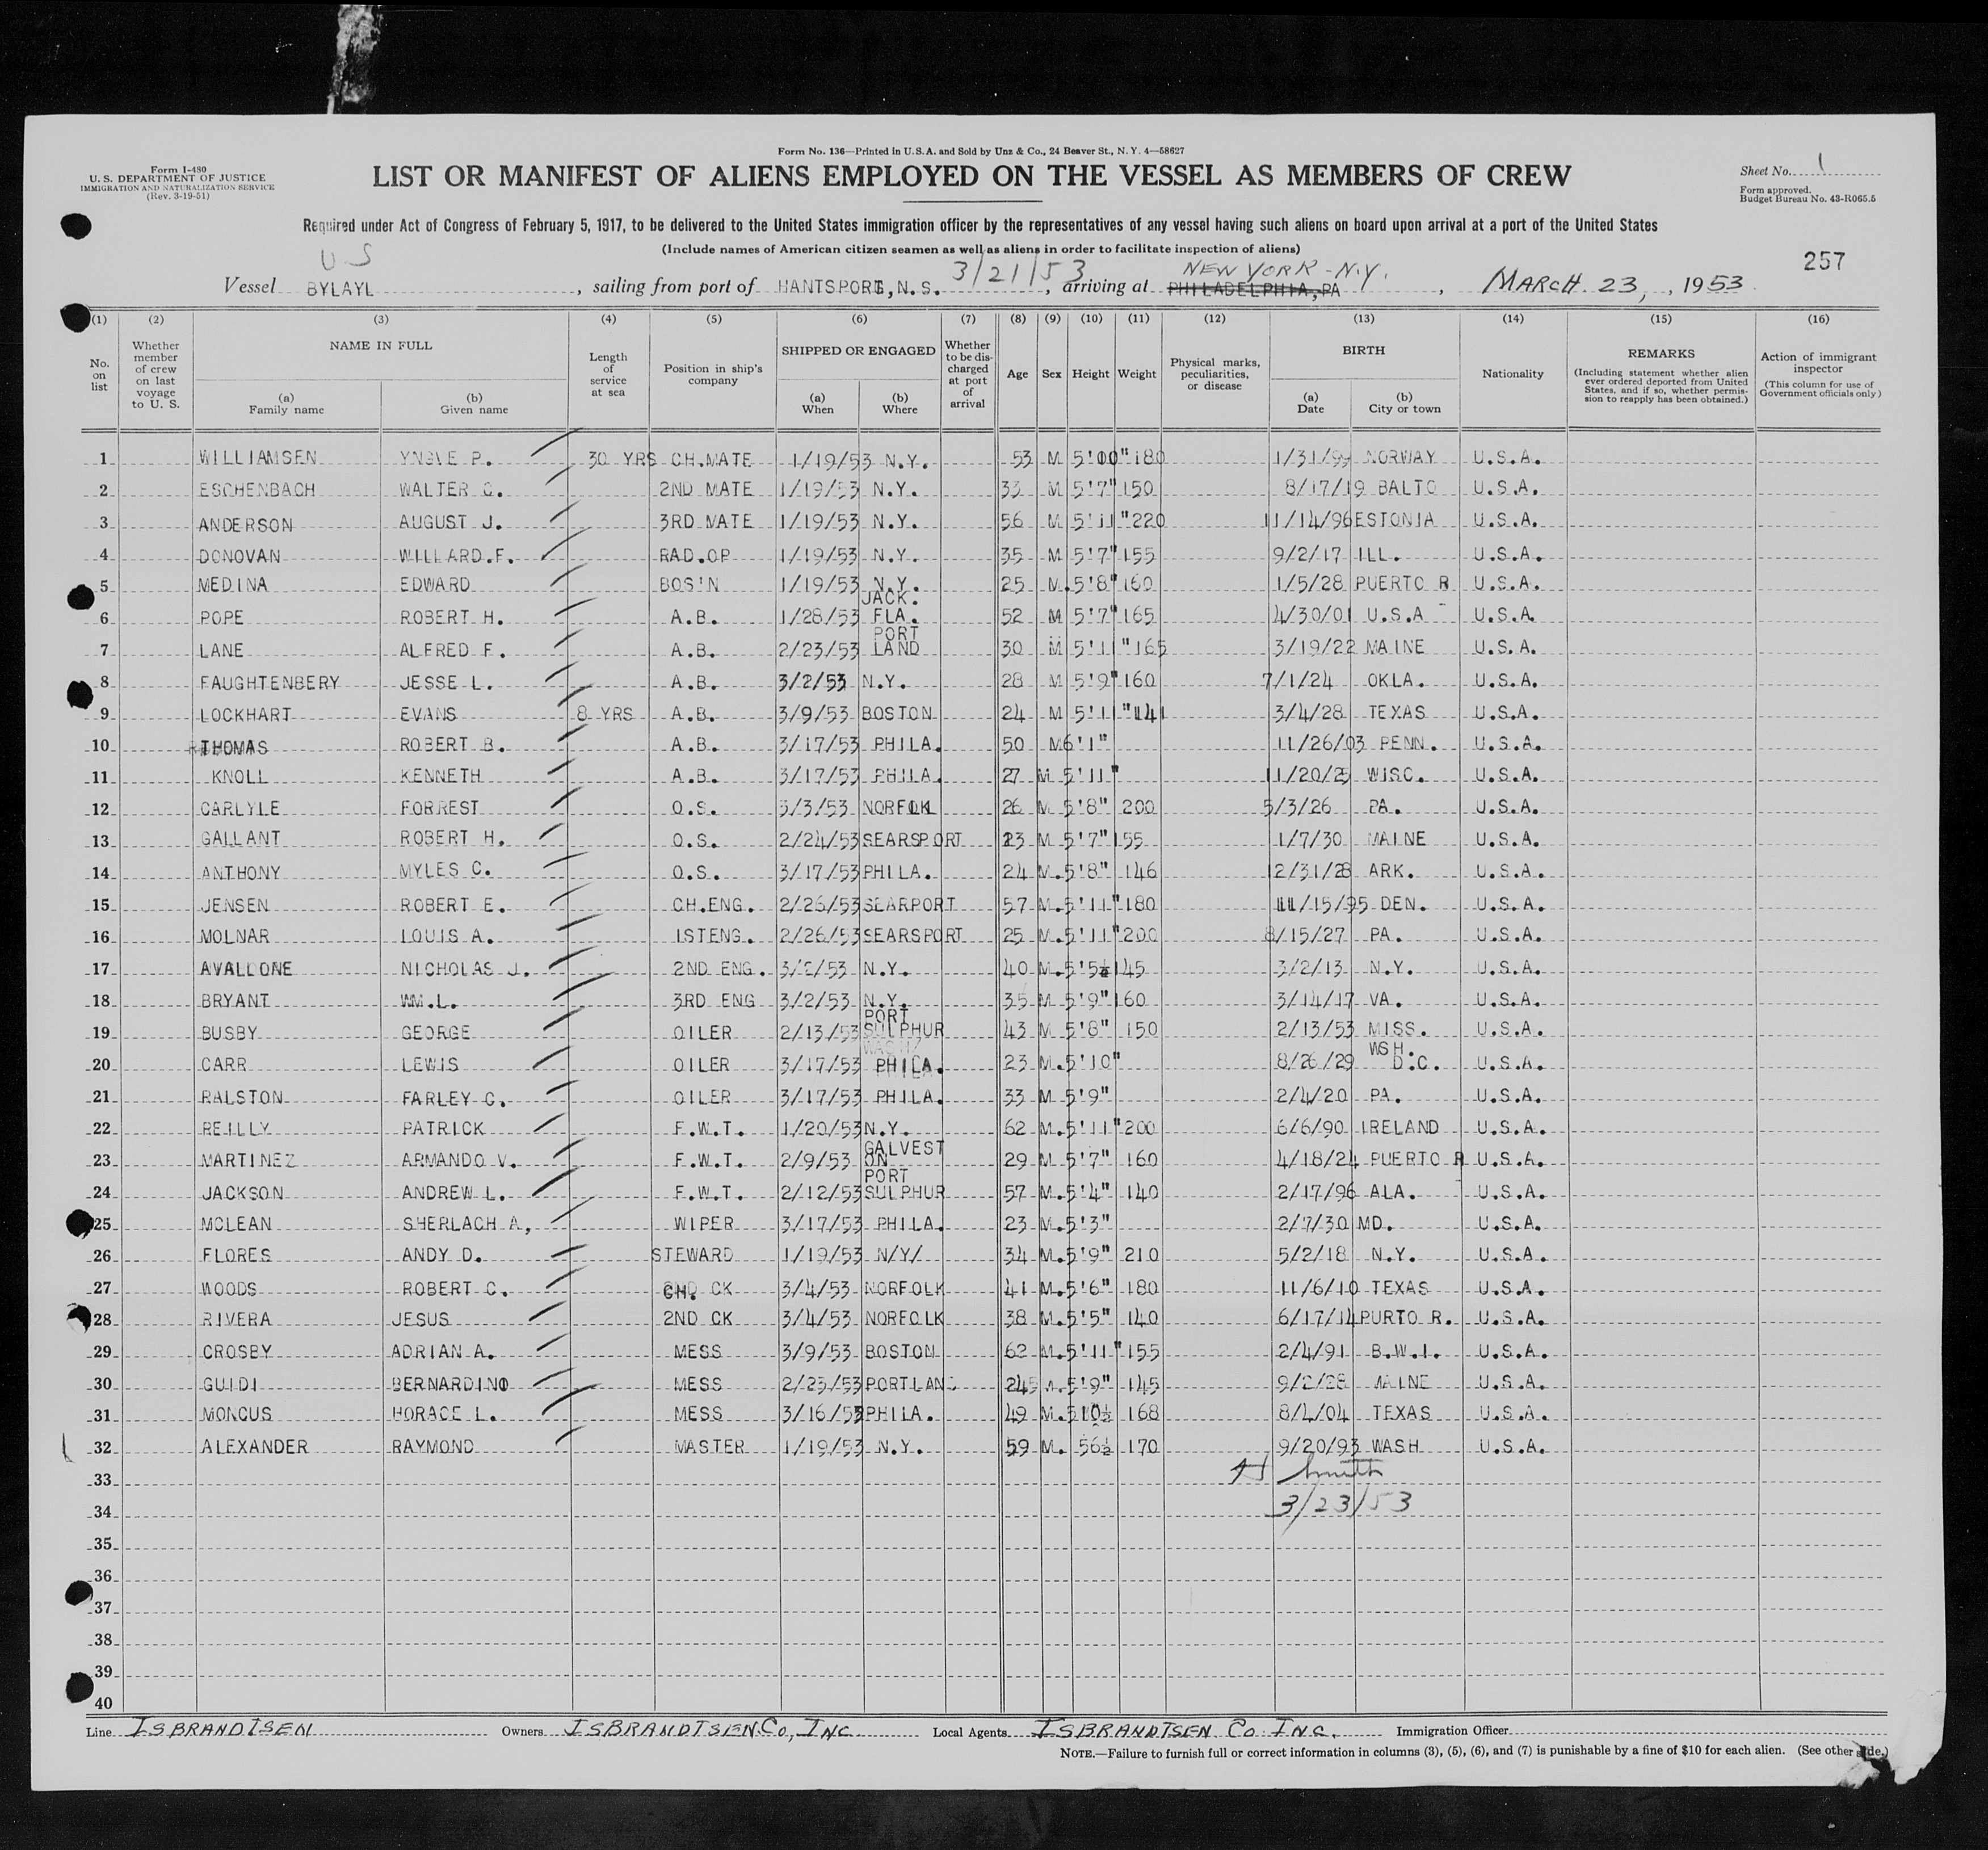 Form No. 136—Printed in U.S.A. and Sold by Unz & Co., 24 Beaver St., N. Y. 4—58627
Form I-480
U. S. DEPARTMENT OF JUSTICE
IMMIGRATION AND NATURALIZATION SERVICE
(Rev. 3-19-51)
LIST OR MANIFEST OF ALIENS EMPLOYED ON THE VESSEL AS MEMBERS OF CREW
Sheet No. 1
Form approved.
Budget Bureau No. 43-R065.5
Required under Act of Congress of February 5, 1917, to be delivered to the United States immigration officer by the representatives of any vessel having such aliens on board upon arrival at a port of the United States
(Include names of American citizen seamen as well as aliens in order to facilitate inspection of aliens)
257
US 3/21/53 NEW YORK - N.Y.
Vessel BYLAYL, sailing from port of HANTSPORT, N.S., arriving at PHILADELPHIA, PA, MARCH 23, 1953
(1) (2) (3) (4) (5) (6) (7) (8) (9) (10) (11) (12) (13) (14) (15) (16)
No. on list
Whether member of crew on last voyage to U. S.
NAME IN FULL
(a) Family name
(b) Given name
Length of service at sea
Position in ship's company
SHIPPED OR ENGAGED
(a) When
(b) Where
Whether to be discharged at port of arrival
Age
Sex
Height
Weight
Physical marks, peculiarities, or disease
BIRTH
(a) Date
(b) City or town
Nationality
REMARKS
(Including statement whether alien ever ordered deported from United States, and if so, whether permission to reapply has been obtained.)
Action of immigrant inspector
(This column for use of Government officials only)
1 WILLIAMSEN YNGVE P. 30 YRS CH.MATE 1/19/53 N.Y. 53 M 5'10" 180 1/31/99 NORWAY U.S.A.
2 ESCHENBACH WALTER C. 2ND MATE 1/19/53 N.Y. 33 M 5'7" 150 8/17/19 BALTO U.S.A.
3 ANDERSON AUGUST J. 3RD MATE 1/19/53 N.Y. 56 M 5'11" 220 11/14/96 ESTONIA U.S.A.
4 DONOVAN WILLARD.F. RAD.OP 1/19/53 N.Y. 35 M 5'7" 155 9/2/17 ILL. U.S.A.
5 MEDINA EDWARD BOS'N 1/19/53 N.Y. 25 M. 5'8" 160 1/5/28 PUERTO R U.S.A.
6 POPE ROBERT H. A.B. 1/28/53 JACK. FLA. 52 M 5'7" 165 4/30/01 U.S.A U.S.A.
7 LANE ALFRED F. A.B. 2/23/53 PORT LAND 30 M 5'11" 165 3/19/22 MAINE U.S.A.
8 FAUGHTENBERY JESSE L. A.B. 3/2/53 N.Y. 28 M 5'9" 160 7/1/24 OKLA. U.S.A.
9 LOCKHART EVANS 8 YRS A.B. 3/9/53 BOSTON 24 M 5'11" 141 3/4/28 TEXAS U.S.A.
10 THOMAS ROBERT B. A.B. 3/17/53 PHILA. 50 M 6'1" 11/26/03 PENN. U.S.A.
11 KNOLL KENNETH A.B. 3/17/53 PHILA. 27 M 5'11" 11/20/25 WISC. U.S.A.
12 CARLYLE FORREST O.S. 3/3/53 NORFOLK 26 M 5'8" 200 5/3/26 PA. U.S.A.
13 GALLANT ROBERT H. O.S. 2/24/53 SEARSPORT 23 M 5'7" 155 1/7/30 MAINE U.S.A.
14 ANTHONY MYLES C. O.S. 3/17/53 PHILA. 24 M. 5'8" 146 12/31/28 ARK. U.S.A.
15 JENSEN ROBERT E. CH.ENG. 2/26/53 SEARPORT 57 M. 5'11" 180 11/15/95 DEN. U.S.A.
16 MOLNAR LOUIS A. 1STENG. 2/26/53 SEARSPORT 25 M. 5'11" 200 8/15/27 PA. U.S.A.
17 AVALLONE NICHOLAS J. 2ND ENG. 3/2/53 N.Y. 40 M. 5'5½ 145 3/2/13 N.Y. U.S.A.
18 BRYANT WM.L. 3RD ENG 3/2/53 N.Y. 35 M 5'9" 160 3/14/17 VA. U.S.A.
19 BUSBY GEORGE OILER 2/13/53 PORT SULPHUR 43 M 5'8" 150 2/13/53 MISS. U.S.A.
20 CARR LEWIS OILER 3/17/53 PHILA. 23 M. 5'10" 8/26/29 WSH. D.C. U.S.A.
21 RALSTON FARLEY C. OILER 3/17/53 PHILA. 33 M 5'9" 2/4/20 PA. U.S.A.
22 REILLY PATRICK F.W.T. 1/20/53 N.Y. 62 M. 5'11" 200 6/6/90 IRELAND U.S.A.
23 MARTINEZ ARMANDO V. F.W.T. 2/9/53 GALVEST ON 29 M 5'7" 160 4/18/24 PUERTO R U.S.A.
24 JACKSON ANDREW L. F.W.T. 2/12/53 PORT SULPHUR 57 M. 5'4" 140 2/17/96 ALA. U.S.A.
25 MCLEAN SHERLACH A, WIPER 3/17/53 PHILA. 23 M. 5'3" 2/7/30 MD. U.S.A.
26 FLORES ANDY D. STEWARD 1/19/53 N/Y/ 34 M. 5'9" 210 5/2/18 N.Y. U.S.A.
27 WOODS ROBERT C. CH. CK 3/4/53 NORFOLK 41 M. 5'6" 180 11/6/10 TEXAS U.S.A.
28 RIVERA JESUS 2ND CK 3/4/53 NORFOLK 38 M. 5'5" 140 6/17/14 PURTO R. U.S.A.
29 CROSBY ADRIAN A. MESS 3/9/53 BOSTON 62 M. 5'11" 155 2/4/91 B.W.I. U.S.A.
30 GUIDI BERNARDINO MESS 2/23/53 PORTLAND 24 M. 5'9" 145 9/2/28 MAINE U.S.A.
31 MONCUS HORACE L. MESS 3/16/53 PHILA. 49 M. 510½ 168 8/4/04 TEXAS U.S.A.
32 ALEXANDER RAYMOND MASTER 1/19/53 N.Y. 59 M. 56½ 170 9/20/93 WASH U.S.A.
33 Smith
34 3/23/53
35
36
37
38
39
40
Line ISBRANDTSEN Owners ISBRANDTSEN Co, INC Local Agents ISBRANDTSEN Co. INC. Immigration Officer
NOTE.—Failure to furnish full or correct information in columns (3), (5), (6), and (7) is punishable by a fine of $10 for each alien. (See other side.)